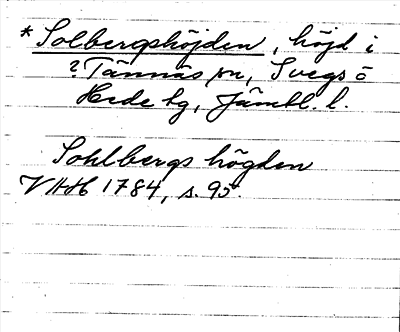 *Solbergshöjden, höjd i
? Tännäs sn, Svegs o
Hede tg, Jämtl. l.
Sohlbergs högden
VHH 1784, s. 95.